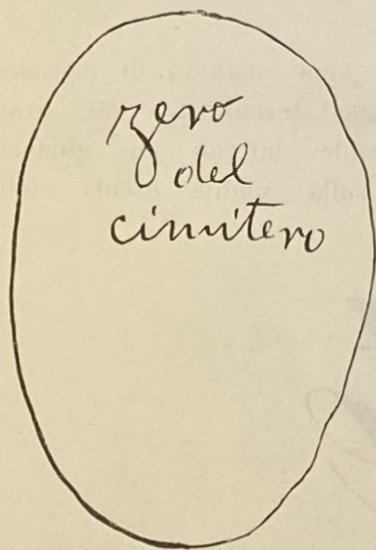 zero
del
cimitero